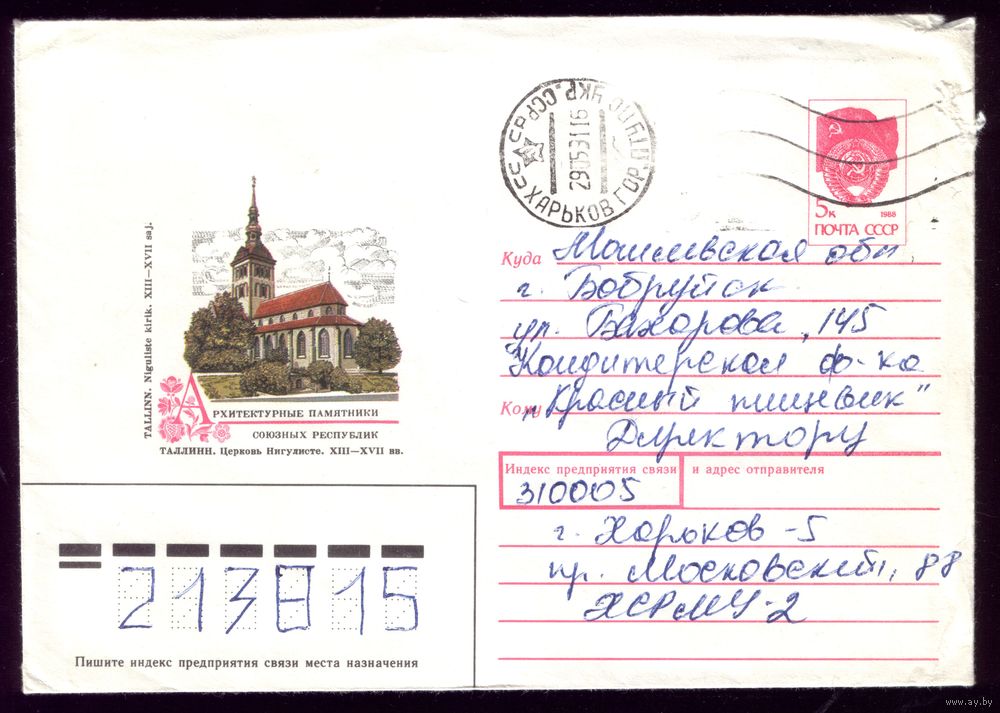 СССР ХАРЬКОВ ГОР. ПОЧТ УКР. ССР
29053116
5к
1988
ПОЧТА СССР
Куда Могилевская обл.
г. Бобруйск
ул. Бахарова, 145
Кондитерская ф-ка
Кому "Красный пищевик"
Директору
Индекс предприятия связи и адрес отправителя
310005
г. Харьков-5
пр. Московский, 88
ХСРМУ-2
TALLINN. Niguliste kirik. XIII—XVII saj.
АРХИТЕКТУРНЫЕ ПАМЯТНИКИ
СОЮЗНЫХ РЕСПУБЛИК
ТАЛЛИНН. Церковь Нигулисте. XIII—XVII вв.
213815
Пишите индекс предприятия связи места назначения
www.ay.by